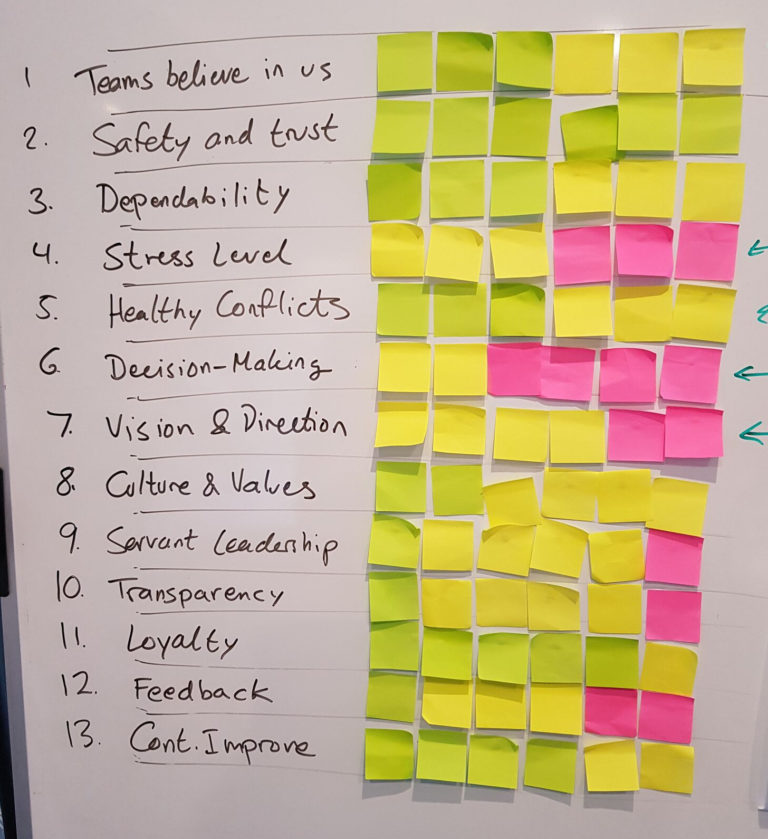 1 Teams believe in us
2. Safety and trust
3. Dependability
4. Stress Level
5. Healthy Conflicts
6. Decision-Making
7. Vision & Direction
8. Culture & Values
9. Servant Leadership
10. Transparency
11. Loyalty
12. Feedback
13. Cont. Improve